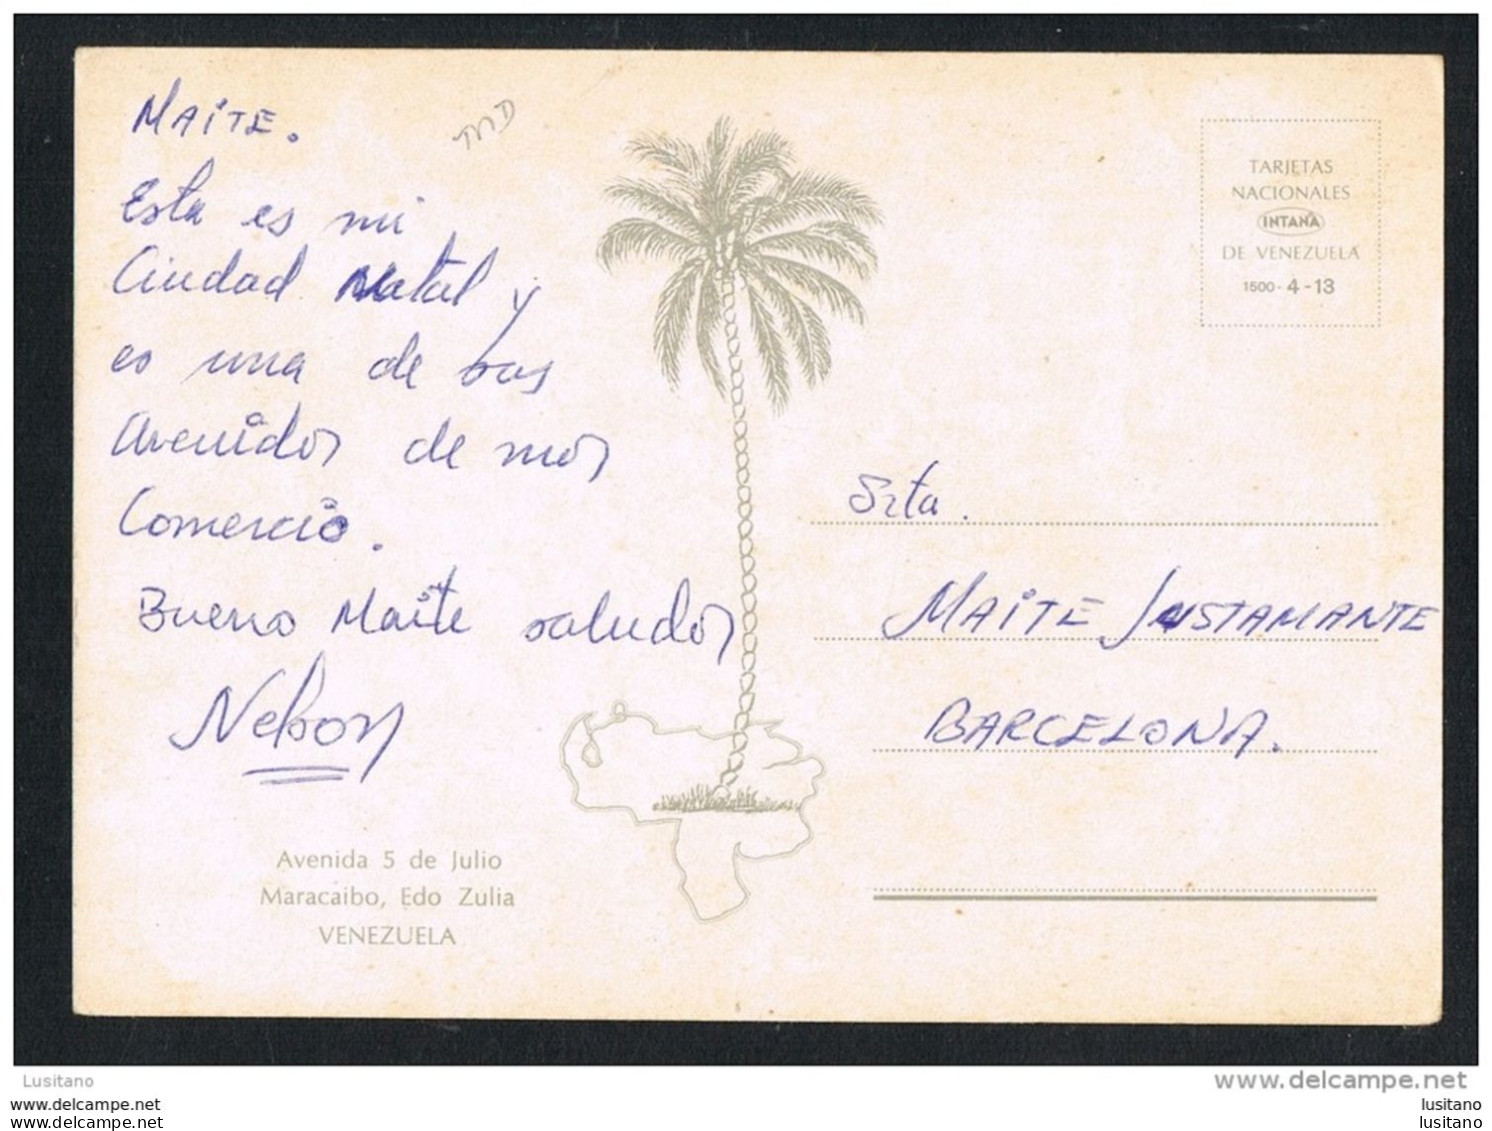 MAITE.
Esta es mi
Ciudad Natal y
es una de las
Avenidas de mas
Comercio.
Bueno Maite saludos
Nelson
TARJETAS
NACIONALES
INTANA
DE VENEZUELA
1500-4-13
Srta.
MAITE JUSTAMANTE
BARCELONA.
Avenida 5 de Julio
Maracaibo, Edo Zulia
VENEZUELA
Lusitano
www.delcampe.net
lusitano
lusitano
lusitano
lusitano